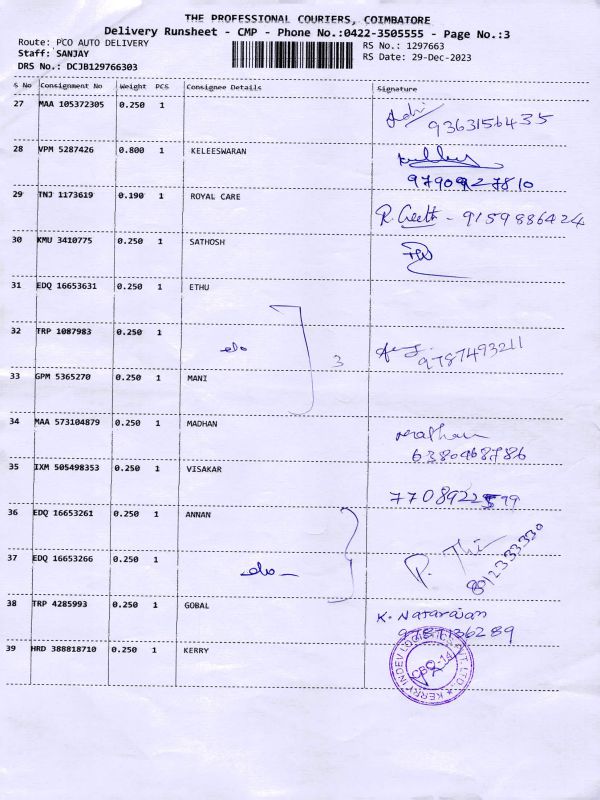 THE PROFESSIONAL COURIERS, COIMBATORE
Delivery Runsheet - CMP - Phone No.:0422-3505555 - Page No.:3
Route: PCO AUTO DELIVERY
RS No.: 1297663
Staff: SANJAY
RS Date: 29-Dec-2023
DRS No.: DCJB129766303
S No Consignment No Weight PCS Consignee Details Signature
27 MAA 105372305 0.250 1
9363156435
28 VPM 5287426 0.800 1 KELEESWARAN
9790927810
29 TNJ 1173619 0.190 1 ROYAL CARE
R. Geeth - 9159886424
30 KMU 3410775 0.250 1 SATHOSH
31 EDQ 16653631 0.250 1 ETHU
32 TRP 1087983 0.250 1
3
9787493211
33 GPM 5365270 0.250 1 MANI
34 MAA 573104879 0.250 1 MADHAN
Madhan
6380468786
35 IXM 505498353 0.250 1 VISAKAR
36 EDQ 16653261 0.250 1 ANNAN
37 EDQ 16653266 0.250 1
P. Thi
38 TRP 4285993 0.250 1 GOBAL
K. Natarajan
9787136289
39 HRD 388818710 0.250 1 KERRY
KERRY INDEV LOGISTICS PVT. LTD.
CBO-14